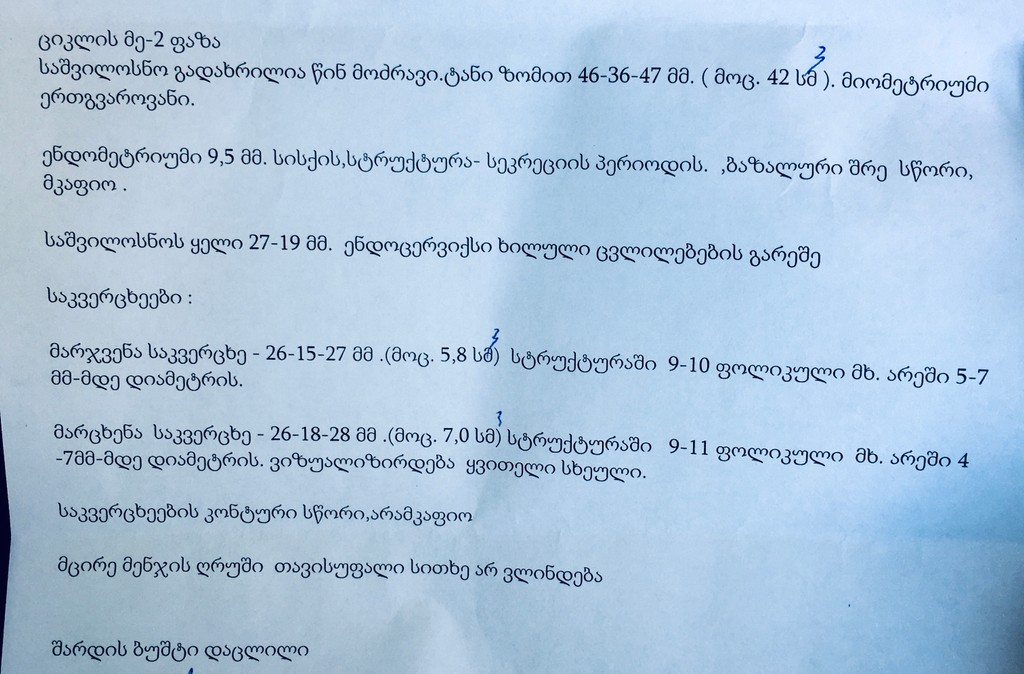 ციკლის მე-2 ფაზა
საშვილოსნო გადახრილია წინ მოძრავი.ტანი ზომით 46-36-47 მმ. ( მოც. 42 სმ3 ). მიომეტრიუმი
ერთგვაროვანი.
ენდომეტრიუმი 9,5 მმ. სისქის,სტრუქტურა- სეკრეციის პერიოდის. ,ბაზალური შრე სწორი,
მკაფიო .
საშვილოსნოს ყელი 27-19 მმ. ენდოცერვიქსი ხილული ცვლილებების გარეშე
საკვერცხეები :
მარჯვენა საკვერცხე - 26-15-27 მმ .(მოც. 5,8 სმ3) სტრუქტურაში 9-10 ფოლიკული მხ. არეში 5-7
მმ-მდე დიამეტრის.
მარცხენა საკვერცხე - 26-18-28 მმ .(მოც. 7,0 სმ3) სტრუქტურაში 9-11 ფოლიკული მხ. არეში 4
-7მმ-მდე დიამეტრის. ვიზუალიზირდება ყვითელი სხეული.
საკვერცხეების კონტური სწორი,არამკაფიო
მცირე მენჯის ღრუში თავისუფალი სითხე არ ვლინდება
შარდის ბუშტი დაცლილი